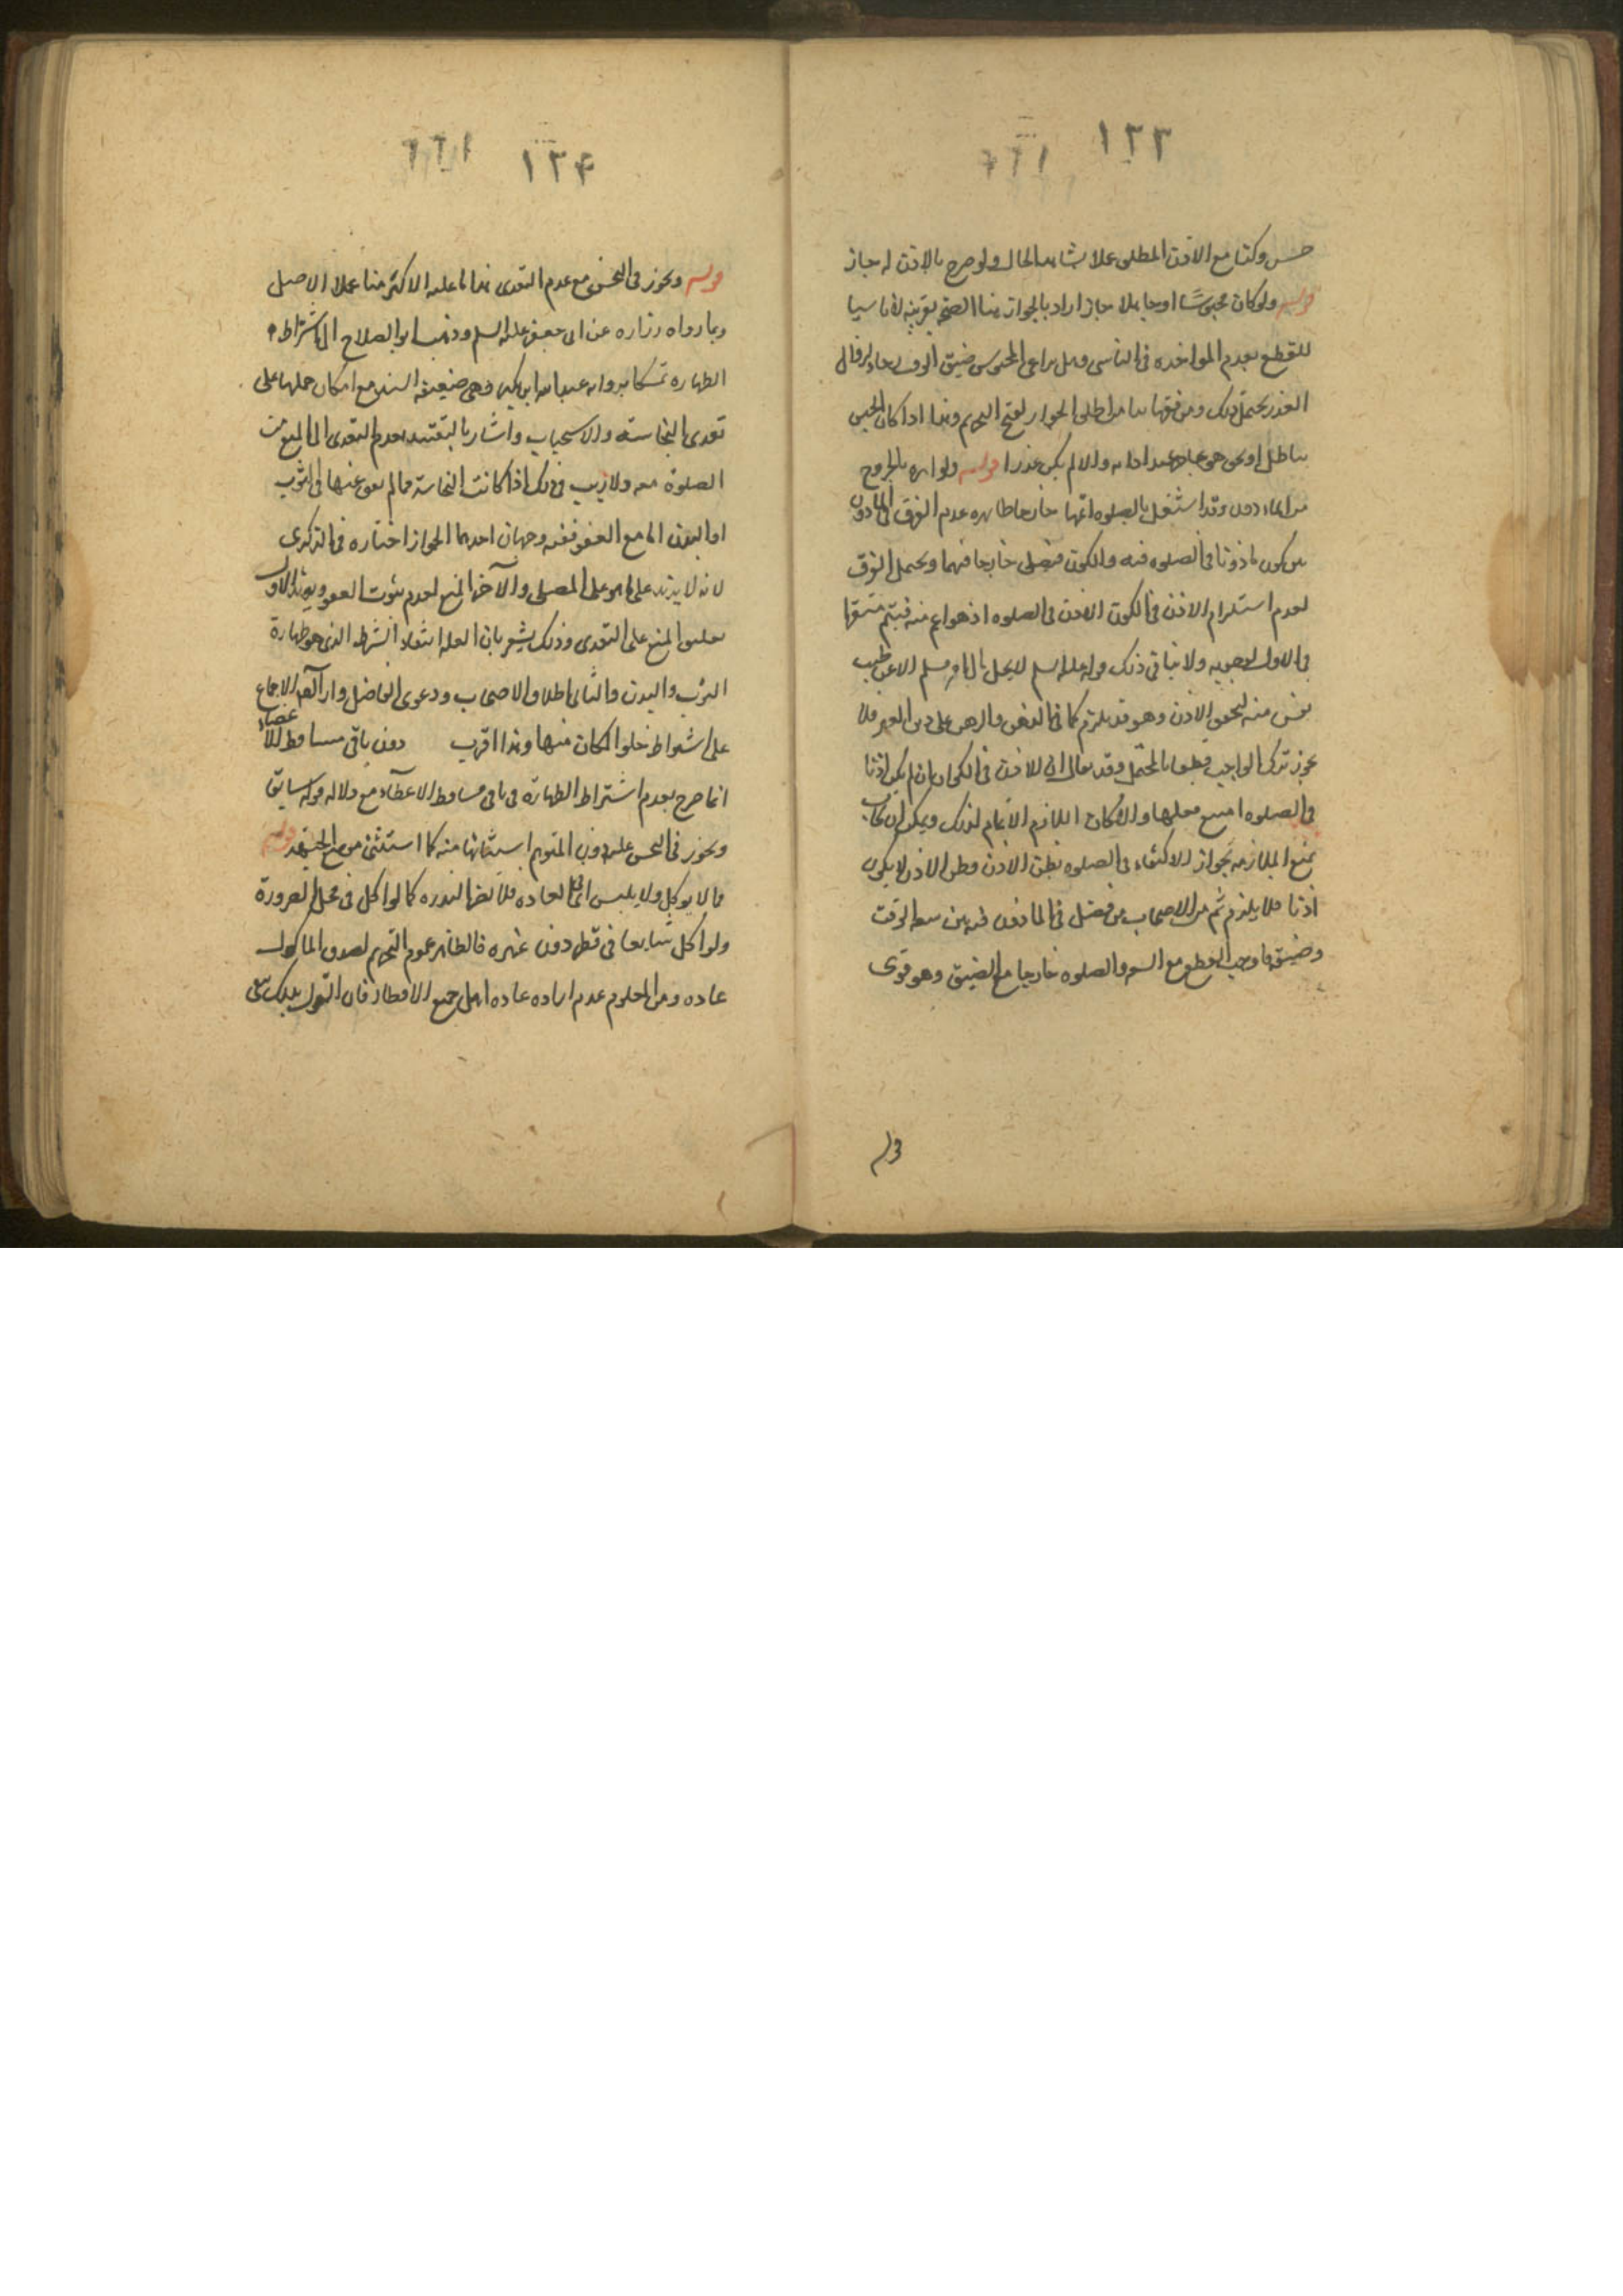 ١٣٣
حسن وكذا مع الاذن المطلق عملا بشاهد الحال ولو صرح بالاذن له جاز
قوله ولو كان محبوسًا او جاهلا جاز اراد بالجواز هنا الصحة بقرينة لا ناسيا
للقطع بعدم المواخذه فى الناسى وهل يراعى المحبوس ضيق الوقت لرجاء زوال
العذر يحتمل ذلك ومن فقهائنا من اطلق الجواز لقبح التحريم وهذا اذا كان الحبس
بباطل او بحق هو عاجز عند ادائه والا لم يكن عذرا قوله ولو امره بالخروج
وقد اشتغل بالصلوه اتمها خارجا ظاهره عدم الفرق فى الماذون
بين كونه ماذونا فى الصلوه فيه والكون فيصلى خارجا فيهما ويحتمل الفرق
لعدم استلزام الاذن فى الكون الاذن فى الصلوه اذ هو اعم منه فيتم مستقرا
فى الاول ولا ينافى ذلك قوله عليه السلم لا يحل مال امرء مسلم الا عن طيب
نفس منه لتحقق الاذن وهو قد يلزم كما فى الدفن والرهن على دين الغير فلا
يجوز ترك الواجب قطعا بالمحتمل وقد يقال ان الاذن فى الكون ان لم يكن اذنا
فى الصلوه امتنع فعلها والا كان اللازم الاتمام لذلك ويمكن ان يجاب
بمنع الملازمه بجواز الاكتفاء فى الصلوه بظن الاذن وظن الاذن لا يكون
اذنا فلا يلزم ثم من الاصحاب من فصل فى الماذون فيه بين سعة الوقت
وضيقه فاوجب القطع مع السعه والصلوه خارجا مع الضيق وهو قوى
قوله
١٣۴
قوله ويجوز فى النجس مع عدم التعدى هذا ما عليه الاكثر منا عملا بالاصل
وبما رواه زراره عن ابى جعفر عليه السلم وذهب ابو الصلاح الى اشتراط
الطهاره تمسكا بروايه عبدالله ابن بكير وهى ضعيفة السند مع امكان حملها على
تعدى النجاسة والاستحباب واشار بالتقييد بعدم التعدى الى المنع من
الصلوة معه ولا ريب فى ذلك اذا كانت النجاسة مما لم يعف عنها فى الثوب
او البدن اما مع العفو ففيه وجهان احدهما الجواز اختاره فى الذكرى
لانه لا يزيد على ما هو على المصلى والآخر المنع لعدم ثبوت العفو ويؤيد الاول
تعليق المنع على التعدى وذلك يشعر بان العلة انتفاء الشرط الذى هو طهارة
الثوب والبدن والثانى اطلاق الاصحاب ودعوى الفاضل وارادته الاجماع
على اشتراط خلو المكان منها وهذا اقرب دون باقى مساقط الاعضاء
انما صرح بعدم اشتراط الطهارة فى باقى مساقط الاعضاء مع دلالة قوله سابقا
ويجوز فى النجس عليه دون المتوهم استثنائها منه كما استثنى موضع الجبهة قوله
مما لا يوكل ولا يلبس اى فى العاده فلا تضر الندره كما لو اكل فى محل الضرورة
ولو اكل شايعا فى قطر دون غيره فالظاهر عموم التحريم لصدق الماكول
عاده ومن المعلوم عدم اراده عاده اهل جميع الاقطار فان القول بذلك